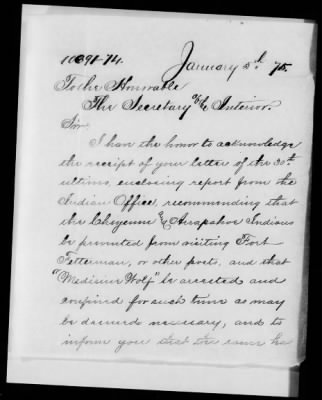 10691-74.
January 5th 75.
To the Honorable
The Secretary of the Interior.
Sir:
I have the honor to acknowledge
the receipt of your letter of the 30th
ultimo, enclosing report from the
Indian Office, recommending that
the Cheyenne & Arapahoe Indians
be prevented from visiting Fort
Fetterman, or other posts, and that
"Medicine Wolf" be arrested and
confined for such time as may
be deemed necessary, and to
inform you that the same ha